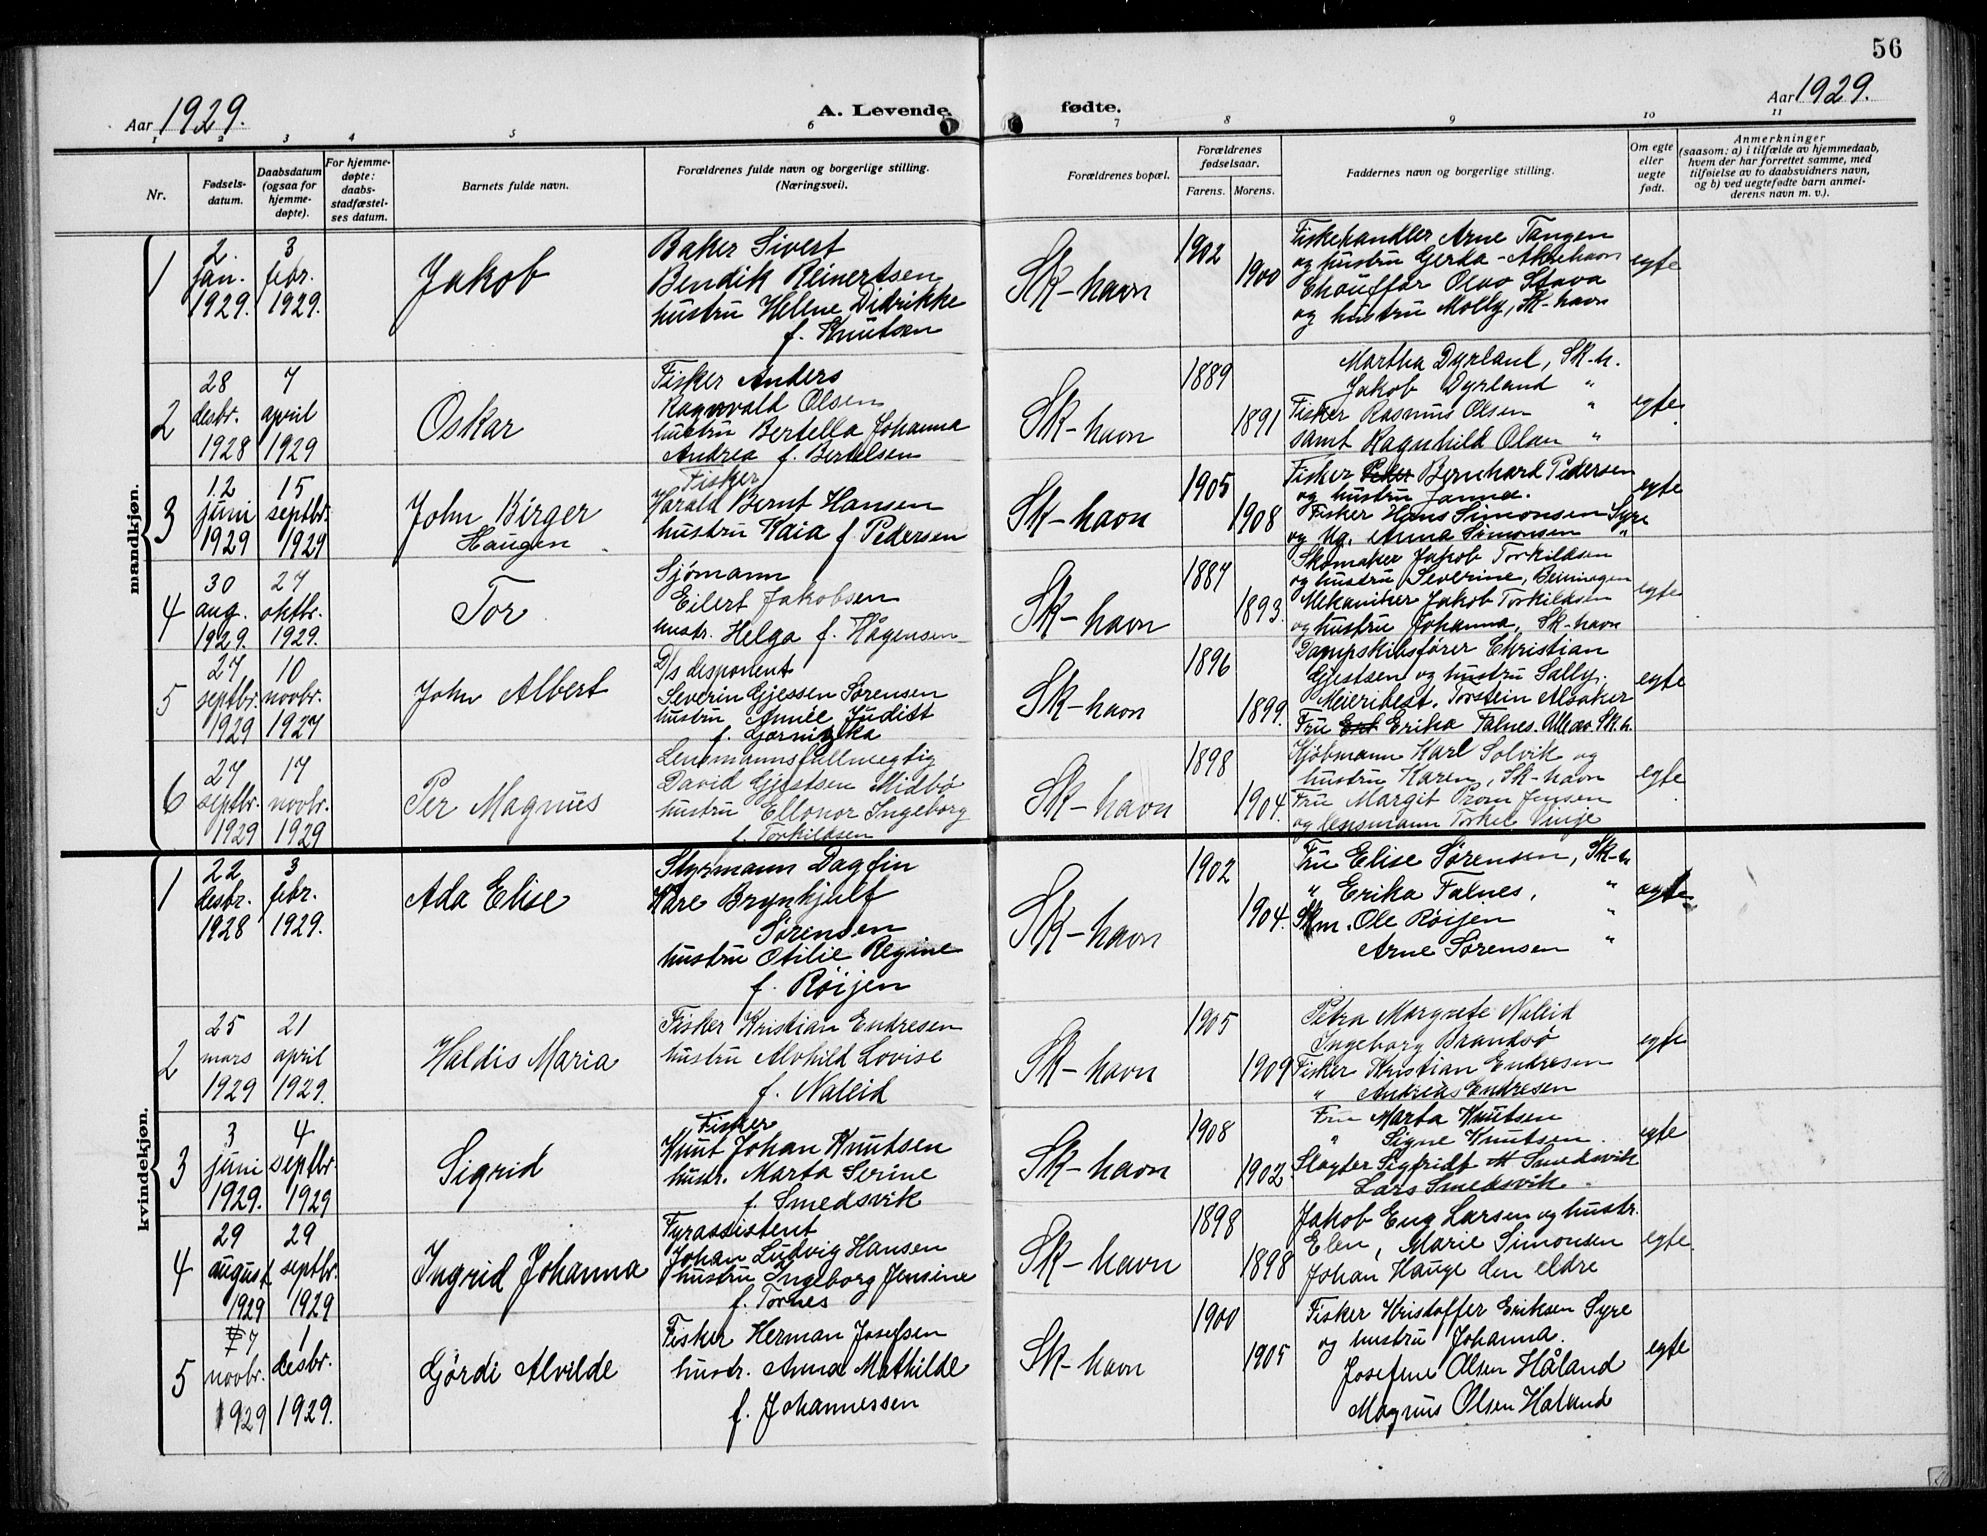 56
Aar 1929.
A. Levende fødte.
Aar 1929.
1 2 3 4 5 6 7 8 9 10 11
Nr.
Fødsels-
datum.
Daabsdatum
(ogsaa for
hjemme-
døpte).
For hjemme-
døpte:
daabs-
stadfæstel-
ses datum.
Barnets fulde navn.
Forældrenes fulde navn og borgerlige stilling.
(Næringsvei).
Forældrenes bopæl.
Forældrenes
fødselsaar.
Farens. Morens.
Faddernes navn og borgerlige stilling.
Om egte
eller
uegte
født.
Anmerkninger
(saasom: a) i tilfælde av hjemmedaab,
hvem der har forrettet samme, med
tilføielse av to daabsvidners navn,
og b) ved uegtefødte barn anmel-
derens navn m. v.).
mandkjøn.
1
2.
jan.
1929.
3
febr.
1929.
Jakob
Baker Sivert
Bendik Reinertsen
hustru Hellene Didrikke
f. Knutsen
Sk-havn
1902
1900
Fiskehandler Arne Tangen
og hustru Gerda - Akrehavn
Chauffør Olav Stava
og hustru Molly, Sk-havn
egte
2
28
desbr.
1928
7
april
1929
Oskar
Fisker Anders
Ragnvald Olsen
hustru Bertella Johanna
Andrea f. Bertelsen
Sk-havn
1889
1891
Martha Dyrland, Sk-h.
Jakob Dyrland "
Fisker Rasmus Olsen "
samt Ragnhild Olsen "
egte
3
12
juni
1929
15
septbr.
1929
John Birger
Haugen
Fisker
Harald Bernt Hansen
hustru Kaia f. Pedersen
Sk-havn
1905
1908
Fisker Peder Bernhard Pedersen
og hustru Janna.
Fisker Hans Simonsen Syre
og Ug. Anna Simonsen "
egte
4
30
aug.
1929.
27
oktbr.
1929.
Tor
Sjømann
Eilert Jakobsen
hustr. Helga f. Hågensen
Sk-havn
1887
1893
Skomaker Jakob Torkildsen
og hustru Severine,
Mekaniker Jakob Torkildsen
og hustru Johanna, Sk-havn
egte
5
27
septbr.
1929
10
novbr.
1927
John Albert
D/s disponent
Severin Gjessen Sørensen
hustru Année Juditt
f.
Sk-havn
1896
1899.
Dampskibsfører Christian
Gjestsen og hustru Sally.
Meieribest. Torstein Alsaker
Fru Erika Falnes. Alle av Sk.h.
egte
6
27
septbr.
1929
17
novbr.
1929
Per Magnus
Lensmannsfullmegtig
David Gjestsen Midbø
hustru Ellonor Ingeborg
f. Torkildsen
Sk-havn
1898
1904.
Kjøbmann Karl Solvik og
hustru Karen, Sk-havn
Fru Margit Prom Jensen
og lensmann Torkel Vinje
egte
kvindekjøn.
1
22
desbr.
1928
3
febr.
1929.
Ada Elise
Styrmann Dagfin
Kåre Brynhjulf
Sørensen
hustru Otilie Regine
f. Røijen
Sk-havn
1902
1904.
Fru Elise Sørensen, Sk-h
" Erika Falnes, "
Skm. Ole Røijen "
Arne Sørensen "
egte
2
25
mars
1929
21
april
1929.
Haldis Maria
Fisker Kristian Endresen
hustru Alvhild Lovise
f. Naleid
Sk-havn
1905
1909
Petra Margrete Naleid
Ingeborg Brandvø
Fisker Kristian Endresen
" Andreas Endresen
egte
3
3
juni
1929.
4
septbr.
1929
Sigrid
Fisker
Knut Johan Knutsen
hustr. Marta Serine
f. Smedsvik
Sk-havn
1908
1902
Fru Marta Knutsen
" Signe Knutsen.
Slagter Sigfridt M Smedsvik
Lars Smedsvik.
egte
4
29
august
1929
29
septbr.
1929
Ingrid Johanna
Fyrassistent
Johan Ludvig Hansen
hustru Ingeborg Jensine
f. Tornes
Sk-havn
1898
1898
Jakob Eng Larsen og hustr.
Elen, Marie Simonsen
Johan Hauge den eldre
egte
5
7
novbr.
1929
1
desbr.
1929.
Gjørdi Alvilde
Fisker Herman Josefsen
hustr. Anna Mathilde
f. Johannessen
Sk-havn
1900
1905
Fisker Kristoffer Eriksen Syre
og hustru Johanna.
Josefine Olsen Håland
Magnus Olsen Håland
egte